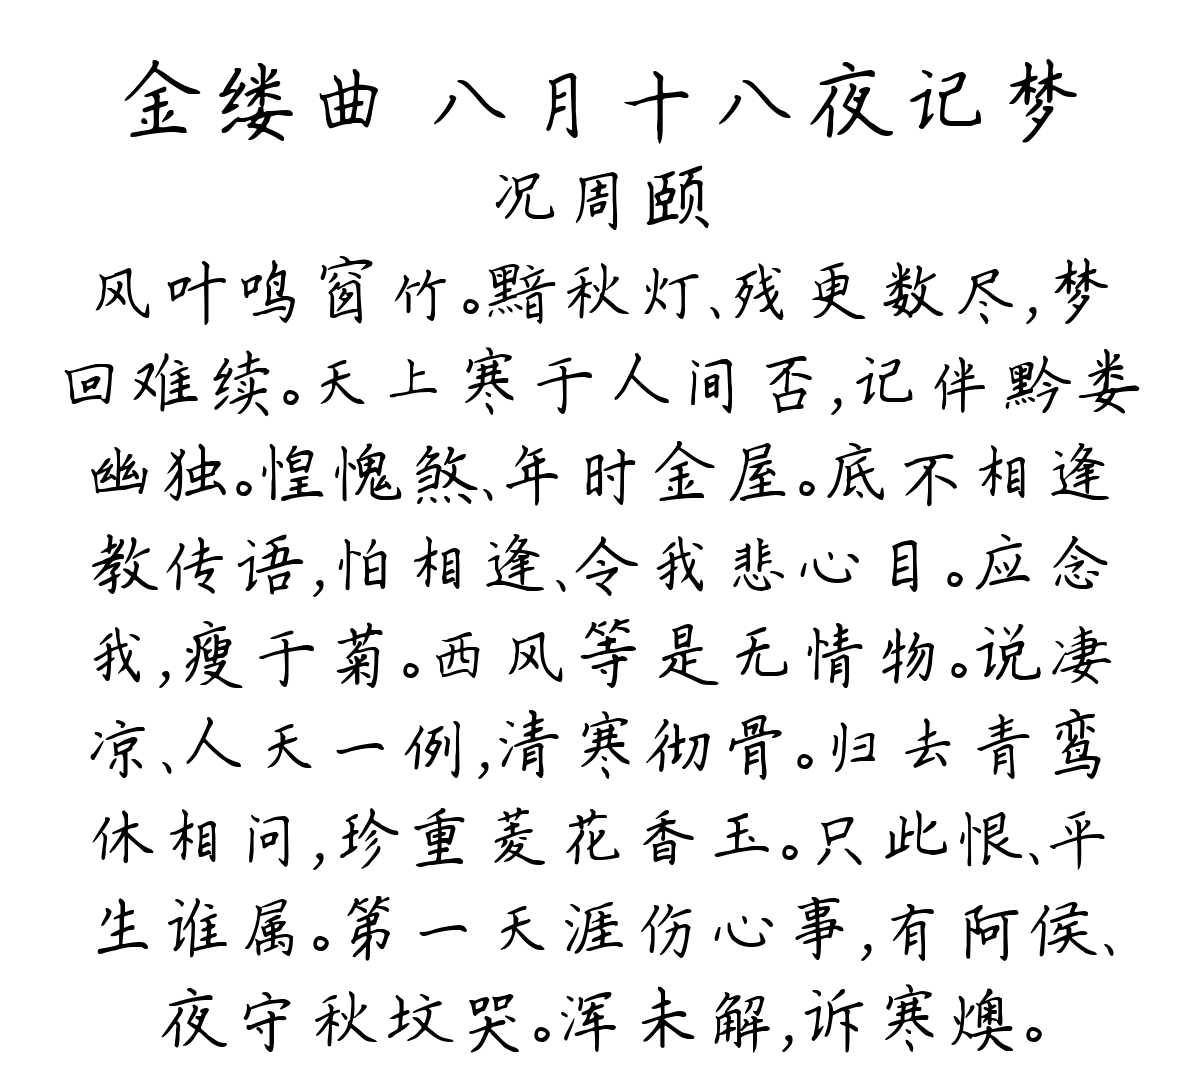 金缕曲 八月十八夜记梦
况周颐
风叶鸣窗竹。黯秋灯、残更数尽,梦
回难续。天上寒于人间否,记伴黔娄
幽独。惶愧煞、年时金屋。底不相逢
教传语,怕相逢、令我悲心目。应念
我,瘦于菊。西风等是无情物。说凄
凉、人天一例,清寒彻骨。归去青鸾
休相问,珍重菱花香玉。只此恨、平
生谁属。第一天涯伤心事,有阿侯、
夜守秋坟哭。浑未解,诉寒燠。